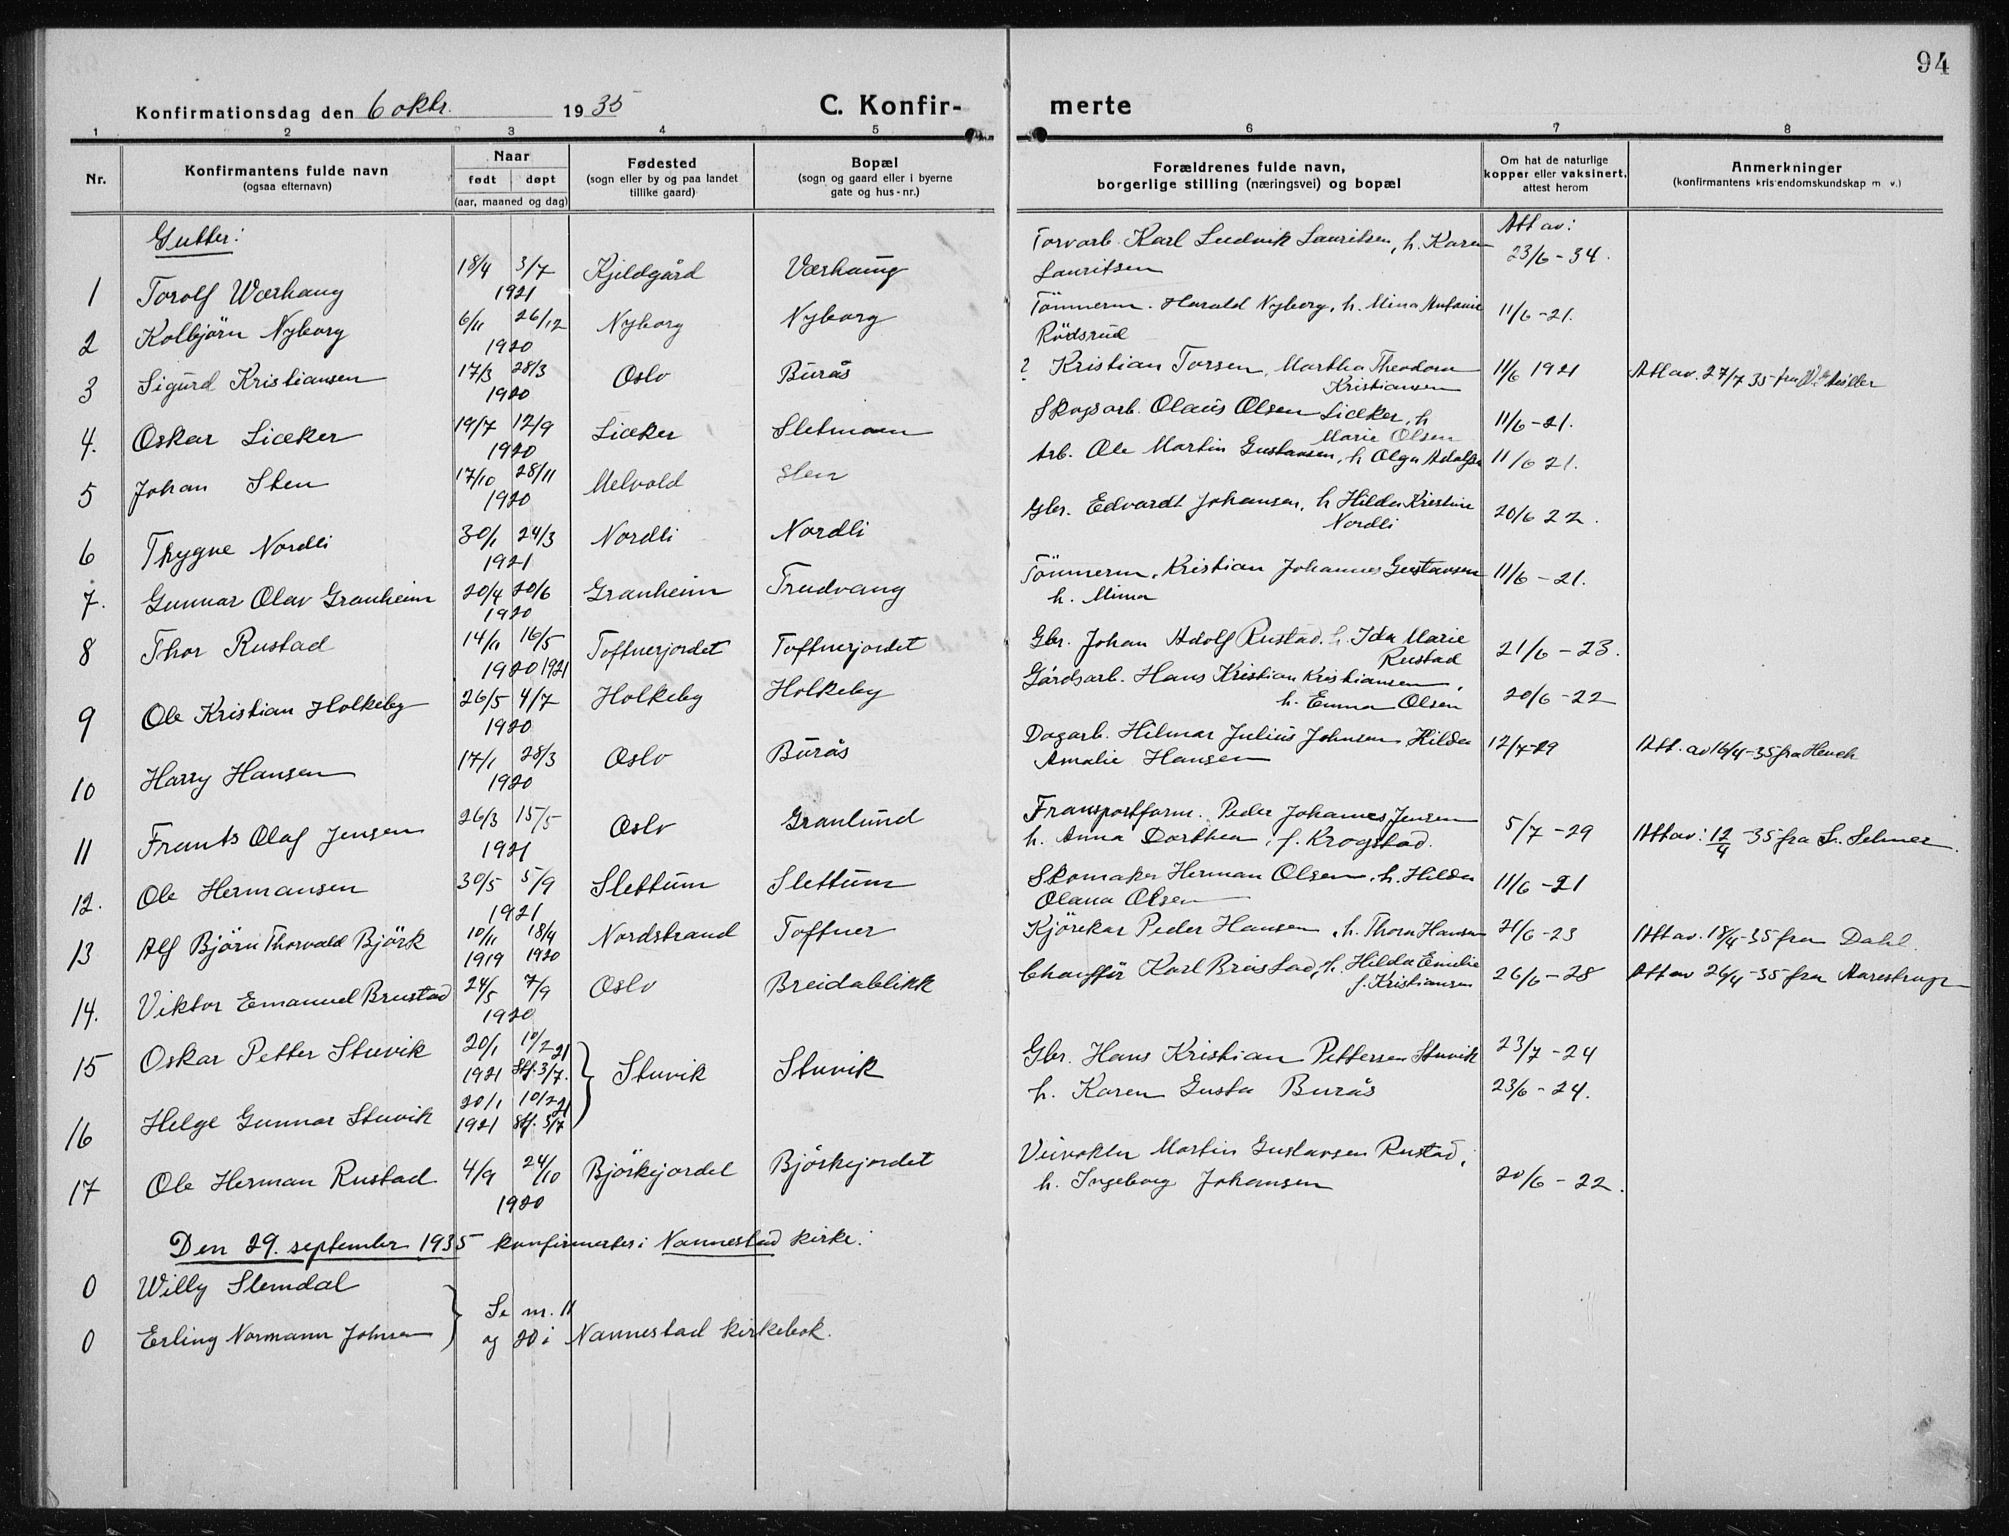 94
Konfirmationsdag den 6 oktr. 1935 C. Konfir- merte
1 2 3 4 5 6 7 8
Nr. Konfirmantens fulde navn (ogsaa efternavn) Naar født døpt (aar, maaned og dag) Fødested (sogn eller by og paa landet tillike gaard) Bopæl (sogn og gaard eller i byerne gate og hus-nr.) Forældrenes fulde navn, borgerlige stilling (næringsvei) og bopæl Om hat de naturlige kopper eller vaksinert, attest herom Anmerkninger (konfirmantens kristendomskundskap m. v.)
Gutter:
1 Torolf Wærhaug 18/4 3/7 1921 Kjeldgård Værhaug Torvarb. Karl Ludvik Lauritsen, h. Karen Lauritsen Att av: 23/6-34.
2 Kolbjörn Nyborg 6/11 26/12 1920 Nyborg Nyborg Tömmerm. Harald Nyborg, h. Mina Antonie Rödsrud 11/6-21.
3 Sigurd Kristiansen 17/3 28/3 1920 Oslo Burås ? Kristian Torsen, Martha Theodora Kristiansen 11/6 1921 Att av. 27/7 35 fra
4. Oskar Liæker 19/7 12/9 1920 Liæker Sletmoen Skogsarb. Olaus Olsen Liæker, h Marie Olsen 11/6-21.
5 Johan Sten 17/10 28/11 1920 Melvold Sten Arb. Ole Martin Gustavsen, h Olga 11/6 21.
6 Thygve Nordli 30/1 24/3 1921 Nordli Nordli Gbr. Edvardt Johansen, h Hilda Kristine Nordli 20/6 22.
7. Gunnar Olav Granheim 20/4 20/6 1920 Granheim Trudvang Tömmerm. Kristian Johannes Gustavsen h. Mina 11/6-21.
8 Thor Rustad 14/11 16/5 1920 1921 Toftnerjordet Toftnerjordet Gbr. Johan Adolf Rustad. h. Ida Marie Rustad 21/6-23.
9 Ole Kristian Holkeby 26/5 4/7 1920 Holkeby Holkeby Gårdsarb. Hans Kristian Kristiansen, h. Emma Olsen 20/6-22
10 Harry Hansen 17/1 28/3 1920 Oslo Burås Dagarb. Hilmar Julius Johnsen Hilda Amalie Hansen 12/7-29 Att. av 16/4-35 fra Hench
11 Frants Olaf Jensen 26/3 15/5 1921 Oslo Granlund Transportform. Peder Johannes Jensen h. Anna Dorthea, f. Krogstad. 5/7-29 Att av: 12/4-35 fra S. Selmer.
12. Ole Hermansen 30/5 5/9 1921 Slettum Slettum Skomaker Herman Olsen, h. Hilda Olana Olsen 11/6-21
13 Alf Björn Thorvald Björk 10/11 18/4 1919 1920 Nordstrand Toftner Kjörekar Peder Hansen, h. Thora Hansen 21/6-23 Att av. 18/4-35 fra Dahl.
14. Viktor Emanuel Brustad 24/5 7/9 1920 Oslo Breidablikk Chauffør Karl Brustad, h. Hilda Emilie f. Kristiansen 26/6-28 Att av 26/4-35 fra Aarestrup
15 Oskar Petter Stuvik 20/1 1921 10/2 21 Stf. 3/7. Stuvik Stuvik Gbr. Hans Kristian Pettersen Stuvik 23/7-24
16 Helge Gunnar Stuvik 20/1 1921 10/2 21 Stf. 3/7 h. Karen Gusta Burås 23/6-24.
17 Ole Herman Rustad 4/9 24/10 1920 Björkejordet Björkejordet Veivokter Martin Gustavsen Rustad, h. Ingeborg Johansen 20/6-22.
Den 29. september 1935 konfirmertes i Nannestad kirke:
0 Willy Slemdal } Se nr. 11
0 Erling Normann Johnsen og 20 i Nannestad kirkebok.